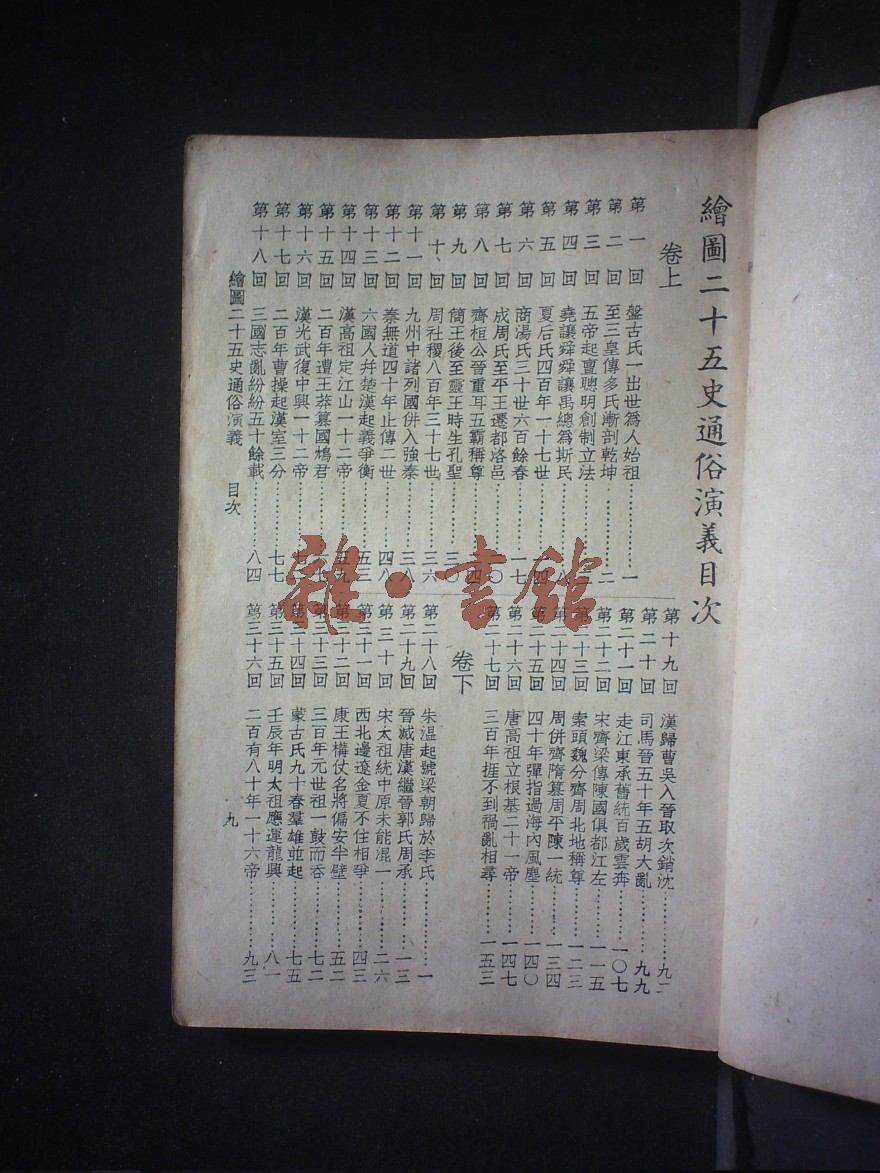 繪圖二十五史通俗演義目次
卷上
第一回 盤古氏一出世爲人始祖…………一
第二回 至三皇傳多氏漸剖乾坤…………二
第三回 五帝起亶聰明創制立法
第四回 堯讓舜舜讓禹總爲斯民
第五回 夏后氏四百年一十七世
第六回 商湯氏三十世六百餘春…………一七
第七回 成周氏至平王遷都洛邑
第八回 齊桓公晉重耳五霸稱尊
第九回 簡王後至靈王時生孔聖…………三〇
第十回 周社稷八百年三十七世…………三六
第十一回 九州中諸列國併入強秦…………三八
第十二回 秦無道四十年止傳二世…………四八
第十三回 六國人幷楚漢起義爭衡…………五三
第十四回 漢高祖定江山一十二帝…………五九
第十五回 二百年遭王莽篡國鴆君
第十六回 漢光武復中興一十二帝
第十七回 二百年曹操起漢室三分…………七七
第十八回 三國志亂紛紛五十餘載…………八四
第十九回 漢歸曹吳入晉取次銷沈…………九二
第二十回 司馬晉五十年五胡大亂…………九九
第二十一回 走江東承舊統百歲雲奔…………一〇七
第二十二回 宋齊梁傳陳國俱都江左…………一一五
第二十三回 索頭魏分齊周北地稱尊…………一二三
第二十四回 周併齊隋篡周平陳一統…………一三四
第二十五回 四十年彈指過海內風塵…………一四〇
第二十六回 唐高祖立根基二十一帝…………一四七
第二十七回 三百年捱不到禍亂相尋…………一五三
卷下
第二十八回 朱溫起號梁朝歸於李氏…………一
第二十九回 晉滅唐漢繼晉郭氏周承…………一三
第三十回 宋太祖統中原未能混一…………二六
第三十一回 西北邊遼金夏不住相爭…………四三
第三十二回 康王構仗名將偏安半壁…………五二
第三十三回 三百年元世祖一鼓而吞…………七二
第三十四回 蒙古氏九十春羣雄並起…………七五
第三十五回 壬辰年明太祖應運龍興…………八一
第三十六回 二百有八十年一十六帝…………九三
繪圖二十五史通俗演義 目次
九
雜·書館